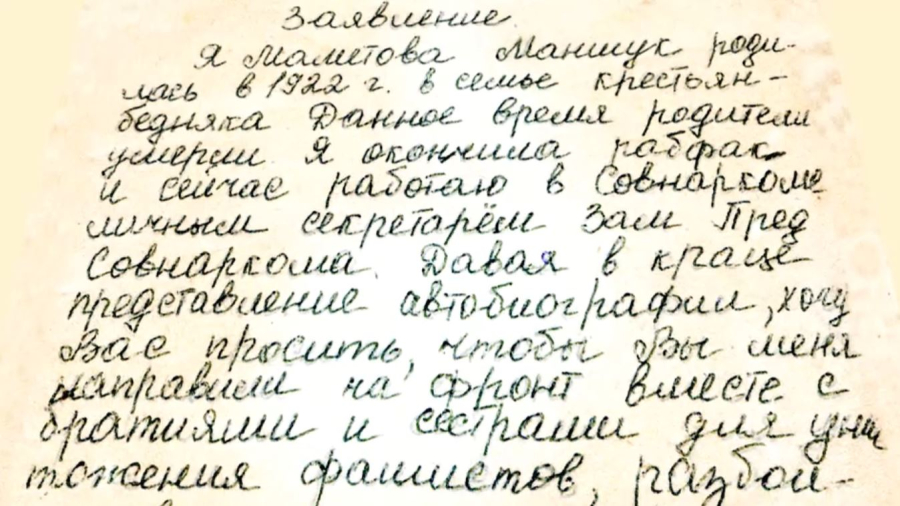 Заявление.
Я Маметова Маншук роди-
лась в 1922 г. в семье крестьян-
бедняка Данное время родители
умерли. Я окончила рабфак
и сейчас работаю в Совнаркоме
личным секретарём Зам Пред
Совнаркома. Давая в краце
представление автобиографии, хочу
Вас просить, чтобы Вы меня
направили на фронт вместе с
братиями и сёстрами для уни
тожения фашистов, разбой-